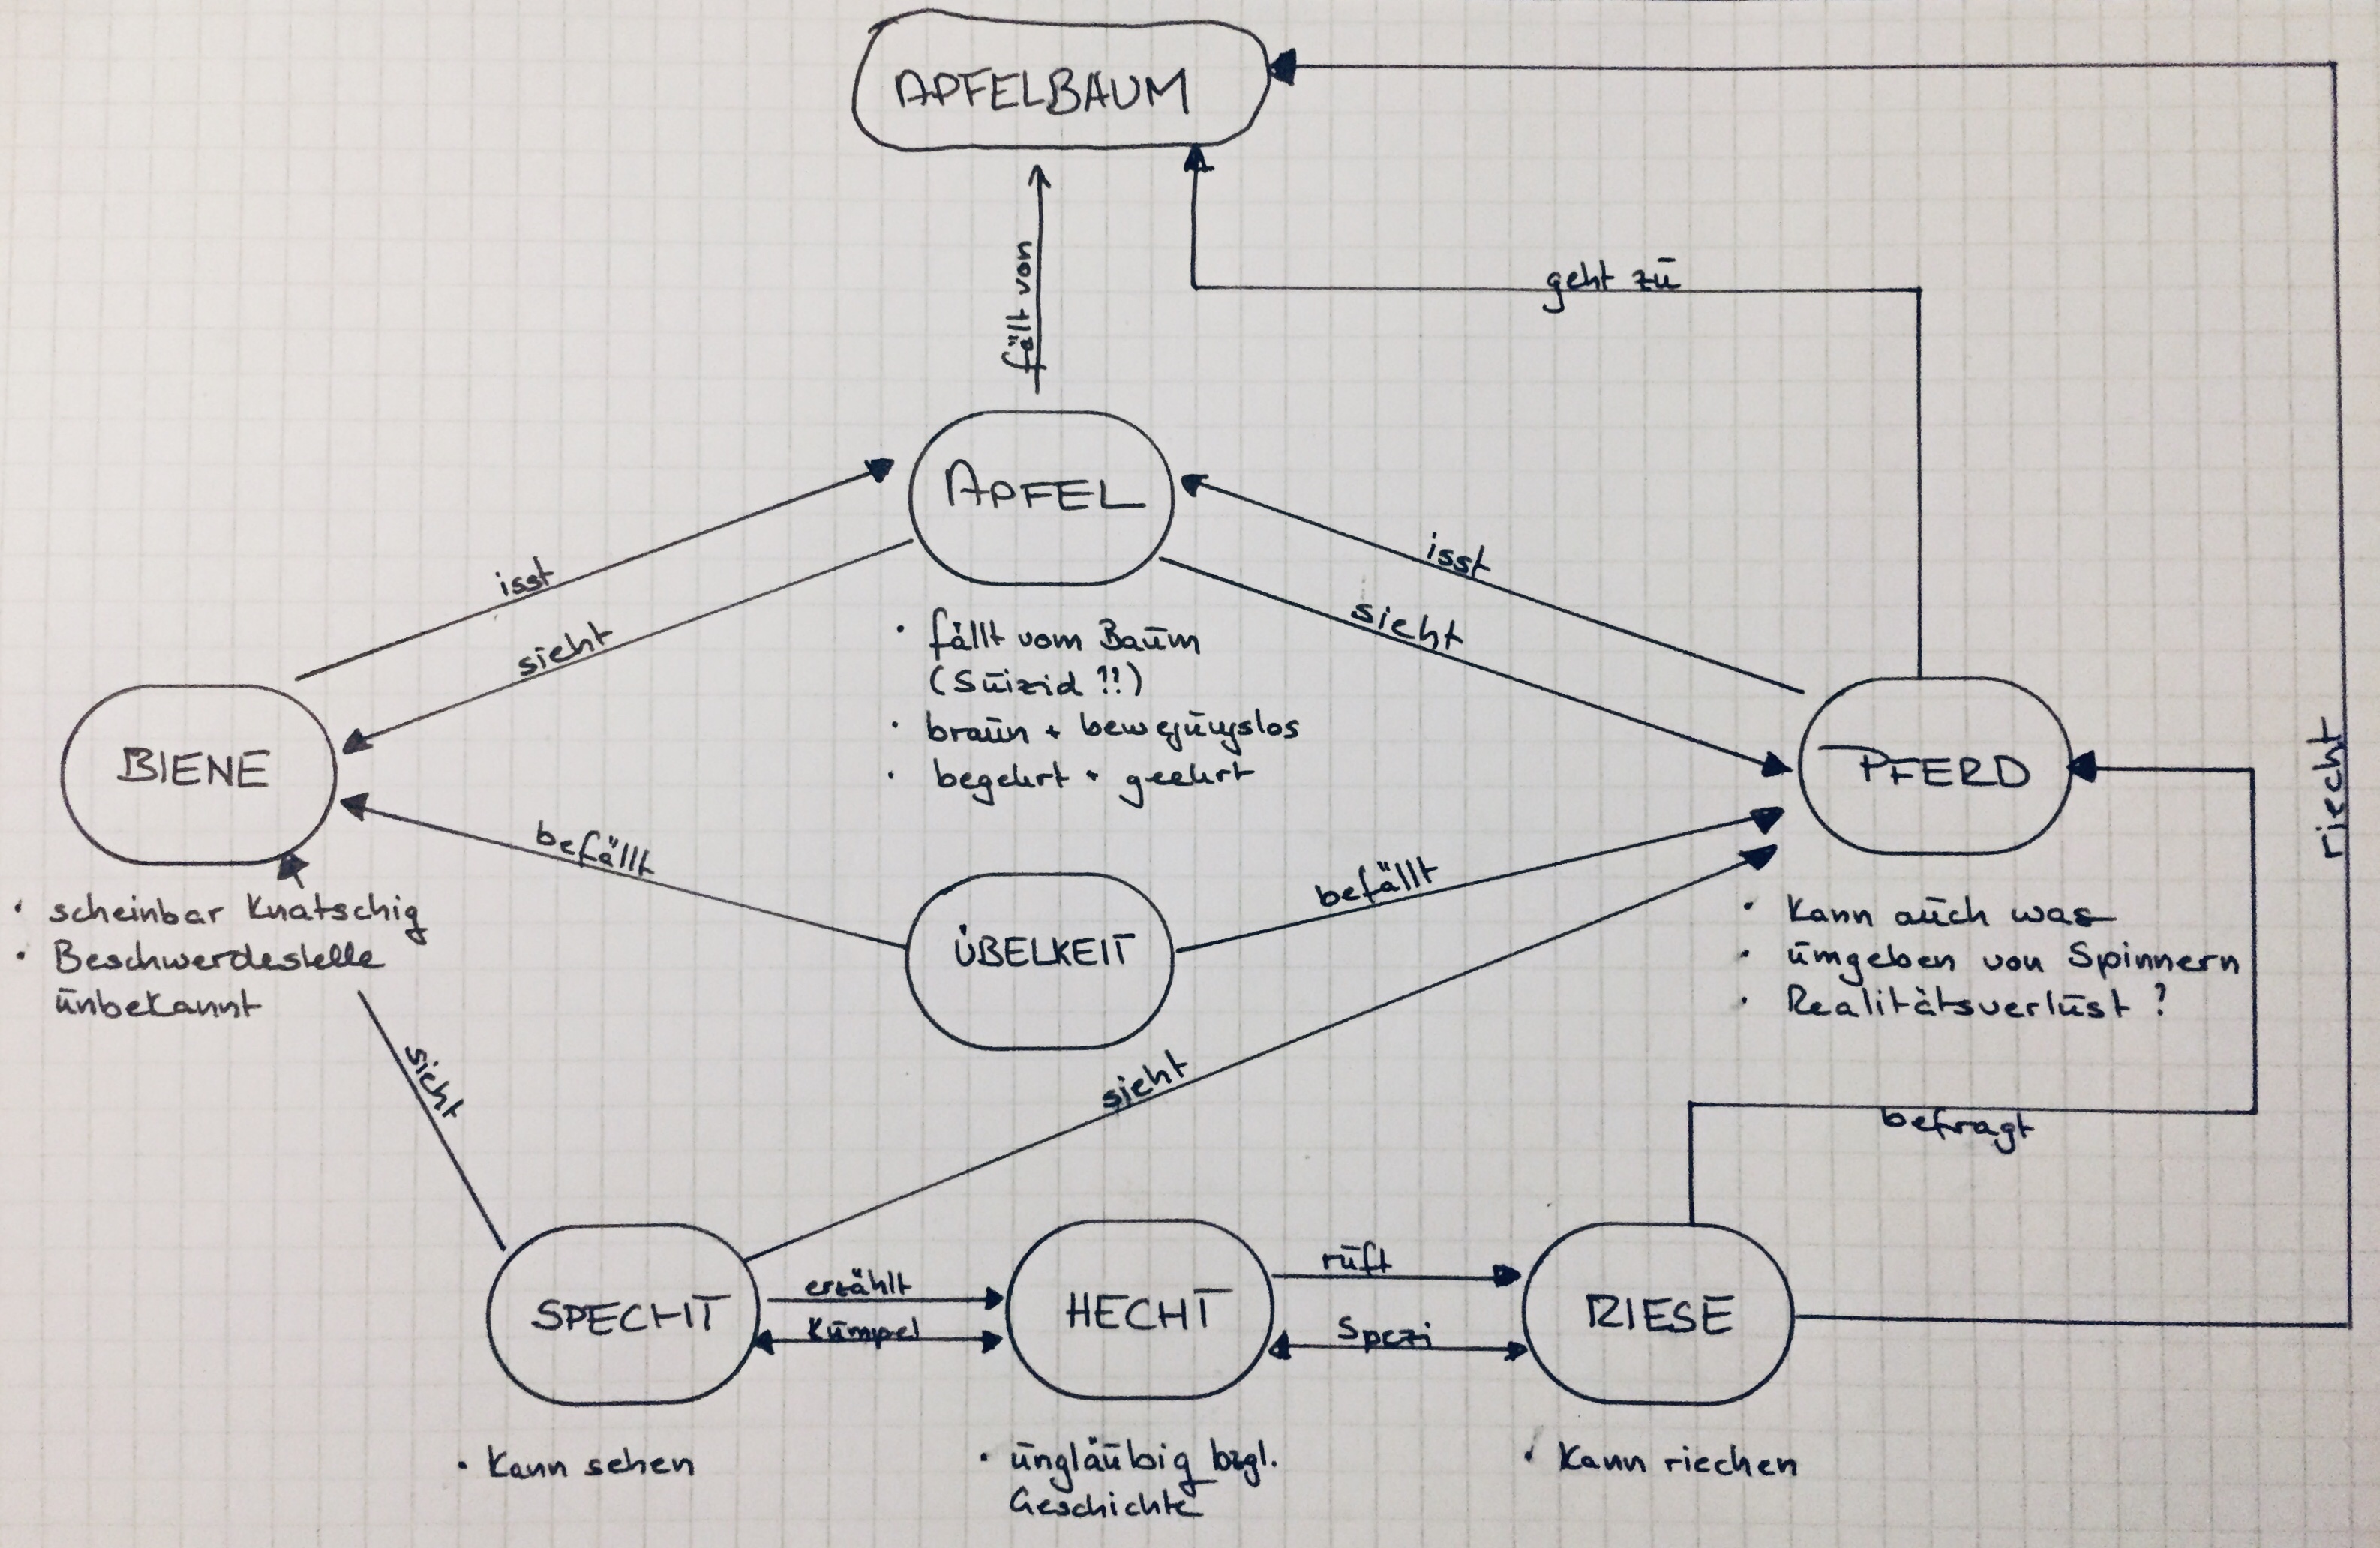 APFELBAUM
geht zu
fällt von
APFEL
isst
isst
sieht
sieht
• fällt vom Baum
(Suizid !!)
• braun + bewegungslos
• begehrt + geehrt
BIENE
PFERD
riecht
befällt
befällt
ÜBELKEIT
• scheinbar Knatschig
• Beschwerdestelle
unbekannt
• Kann auch was
• umgeben von Spinnern
• Realitätsverlust ?
sieht
sieht
befragt
erzählt
ruft
SPECHT
HECHT
RIESE
Kumpel
Spezi
• Kann sehen
• ungläubig bzgl.
Geschichte
• Kann riechen